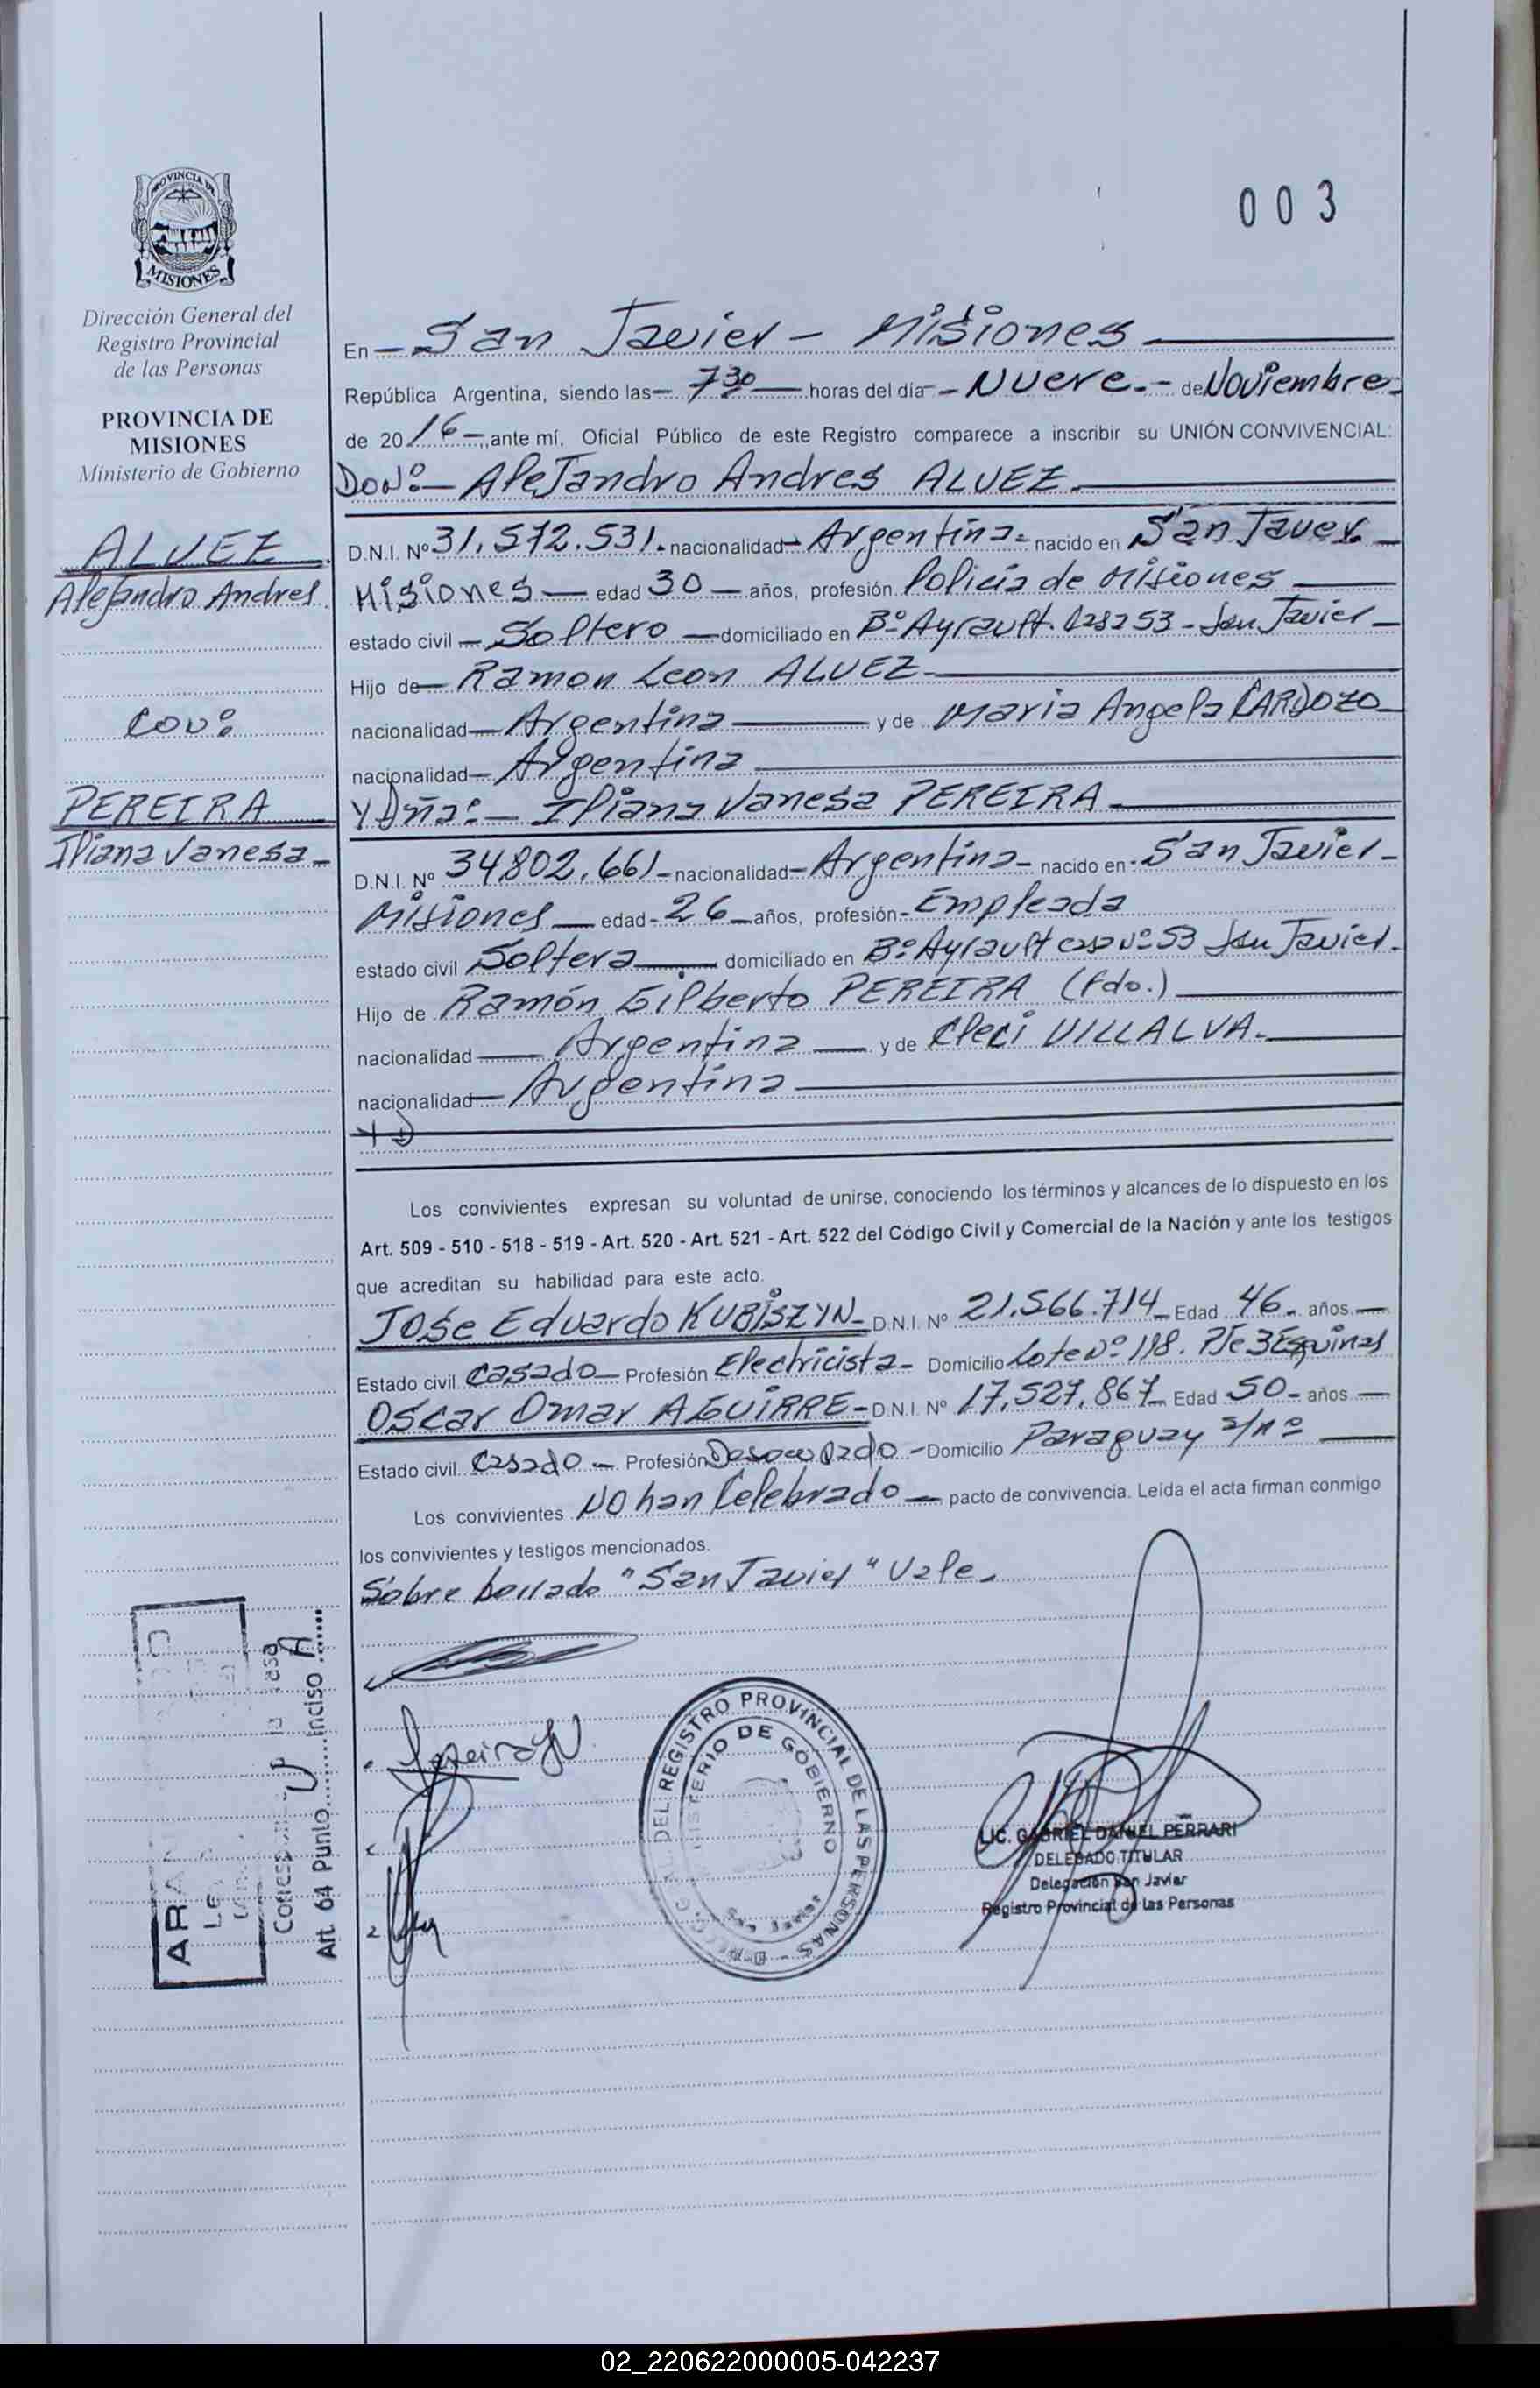 003
PROVINCIA DE
MISIONES
Dirección General del
Registro Provincial
de las Personas
PROVINCIA DE
MISIONES
Ministerio de Gobierno
ALVEZ
Alejandro Andres
Con:
PEREIRA
Iliana Vanesa
En San Javier - Misiones
República Argentina, siendo las 7 30 horas del día Nueve de Noviembre
de 2016 ante mí, Oficial Público de este Registro comparece a inscribir su UNIÓN CONVIVENCIAL:
Don: Alejandro Andres ALVEZ
D.N.I. Nº 31.572.531 nacionalidad Argentina nacido en San Javier
Misiones edad 30 años, profesión Policía de Misiones
estado civil Soltero domiciliado en Bº Ayrault 53 - San Javier
Hijo de Ramon Leon ALVEZ
nacionalidad Argentina y de Maria Angela CARDOZO
nacionalidad Argentina
Y Dña: Iliana Vanesa PEREIRA
D.N.I. Nº 34.802.661 nacionalidad Argentina nacido en San Javier
Misiones edad 26 años, profesión Empleada
estado civil Soltera domiciliado en Bº Ayrault casa Nº 53 San Javier.
Hijo de Ramón Gilberto PEREIRA (fdo.)
nacionalidad Argentina y de Cleci VILLALVA
nacionalidad Argentina
Y D
Los convivientes expresan su voluntad de unirse, conociendo los términos y alcances de lo dispuesto en los
Art. 509 - 510 - 518 - 519 - Art. 520 - Art. 521 - Art. 522 del Código Civil y Comercial de la Nación y ante los testigos
que acreditan su habilidad para este acto.
José Eduardo KUBISZYN D.N.I. Nº 21.566.714 Edad 46 años
Estado civil Casado Profesión Electricista Domicilio Lote Nº 118. Pje 3 Esquinas
Oscar Omar AGUIRRE D.N.I. Nº 17.527.867 Edad 50 años
Estado civil Casado Profesión Desocupado Domicilio Paraguay s/nº
Los convivientes No han Celebrado pacto de convivencia. Leída el acta firman conmigo
los convivientes y testigos mencionados.
Sobre borrado "San Javier" Vale
Art. 64 Punto Inciso A
DEL REGISTRO PROVINCIAL DE LAS PERSONAS
MINISTERIO DE GOBIERNO
LIC. GABRIEL DANIEL PERRARI
DELEGADO TITULAR
Delegación San Javier
Registro Provincial de las Personas
02_220622000005-042237